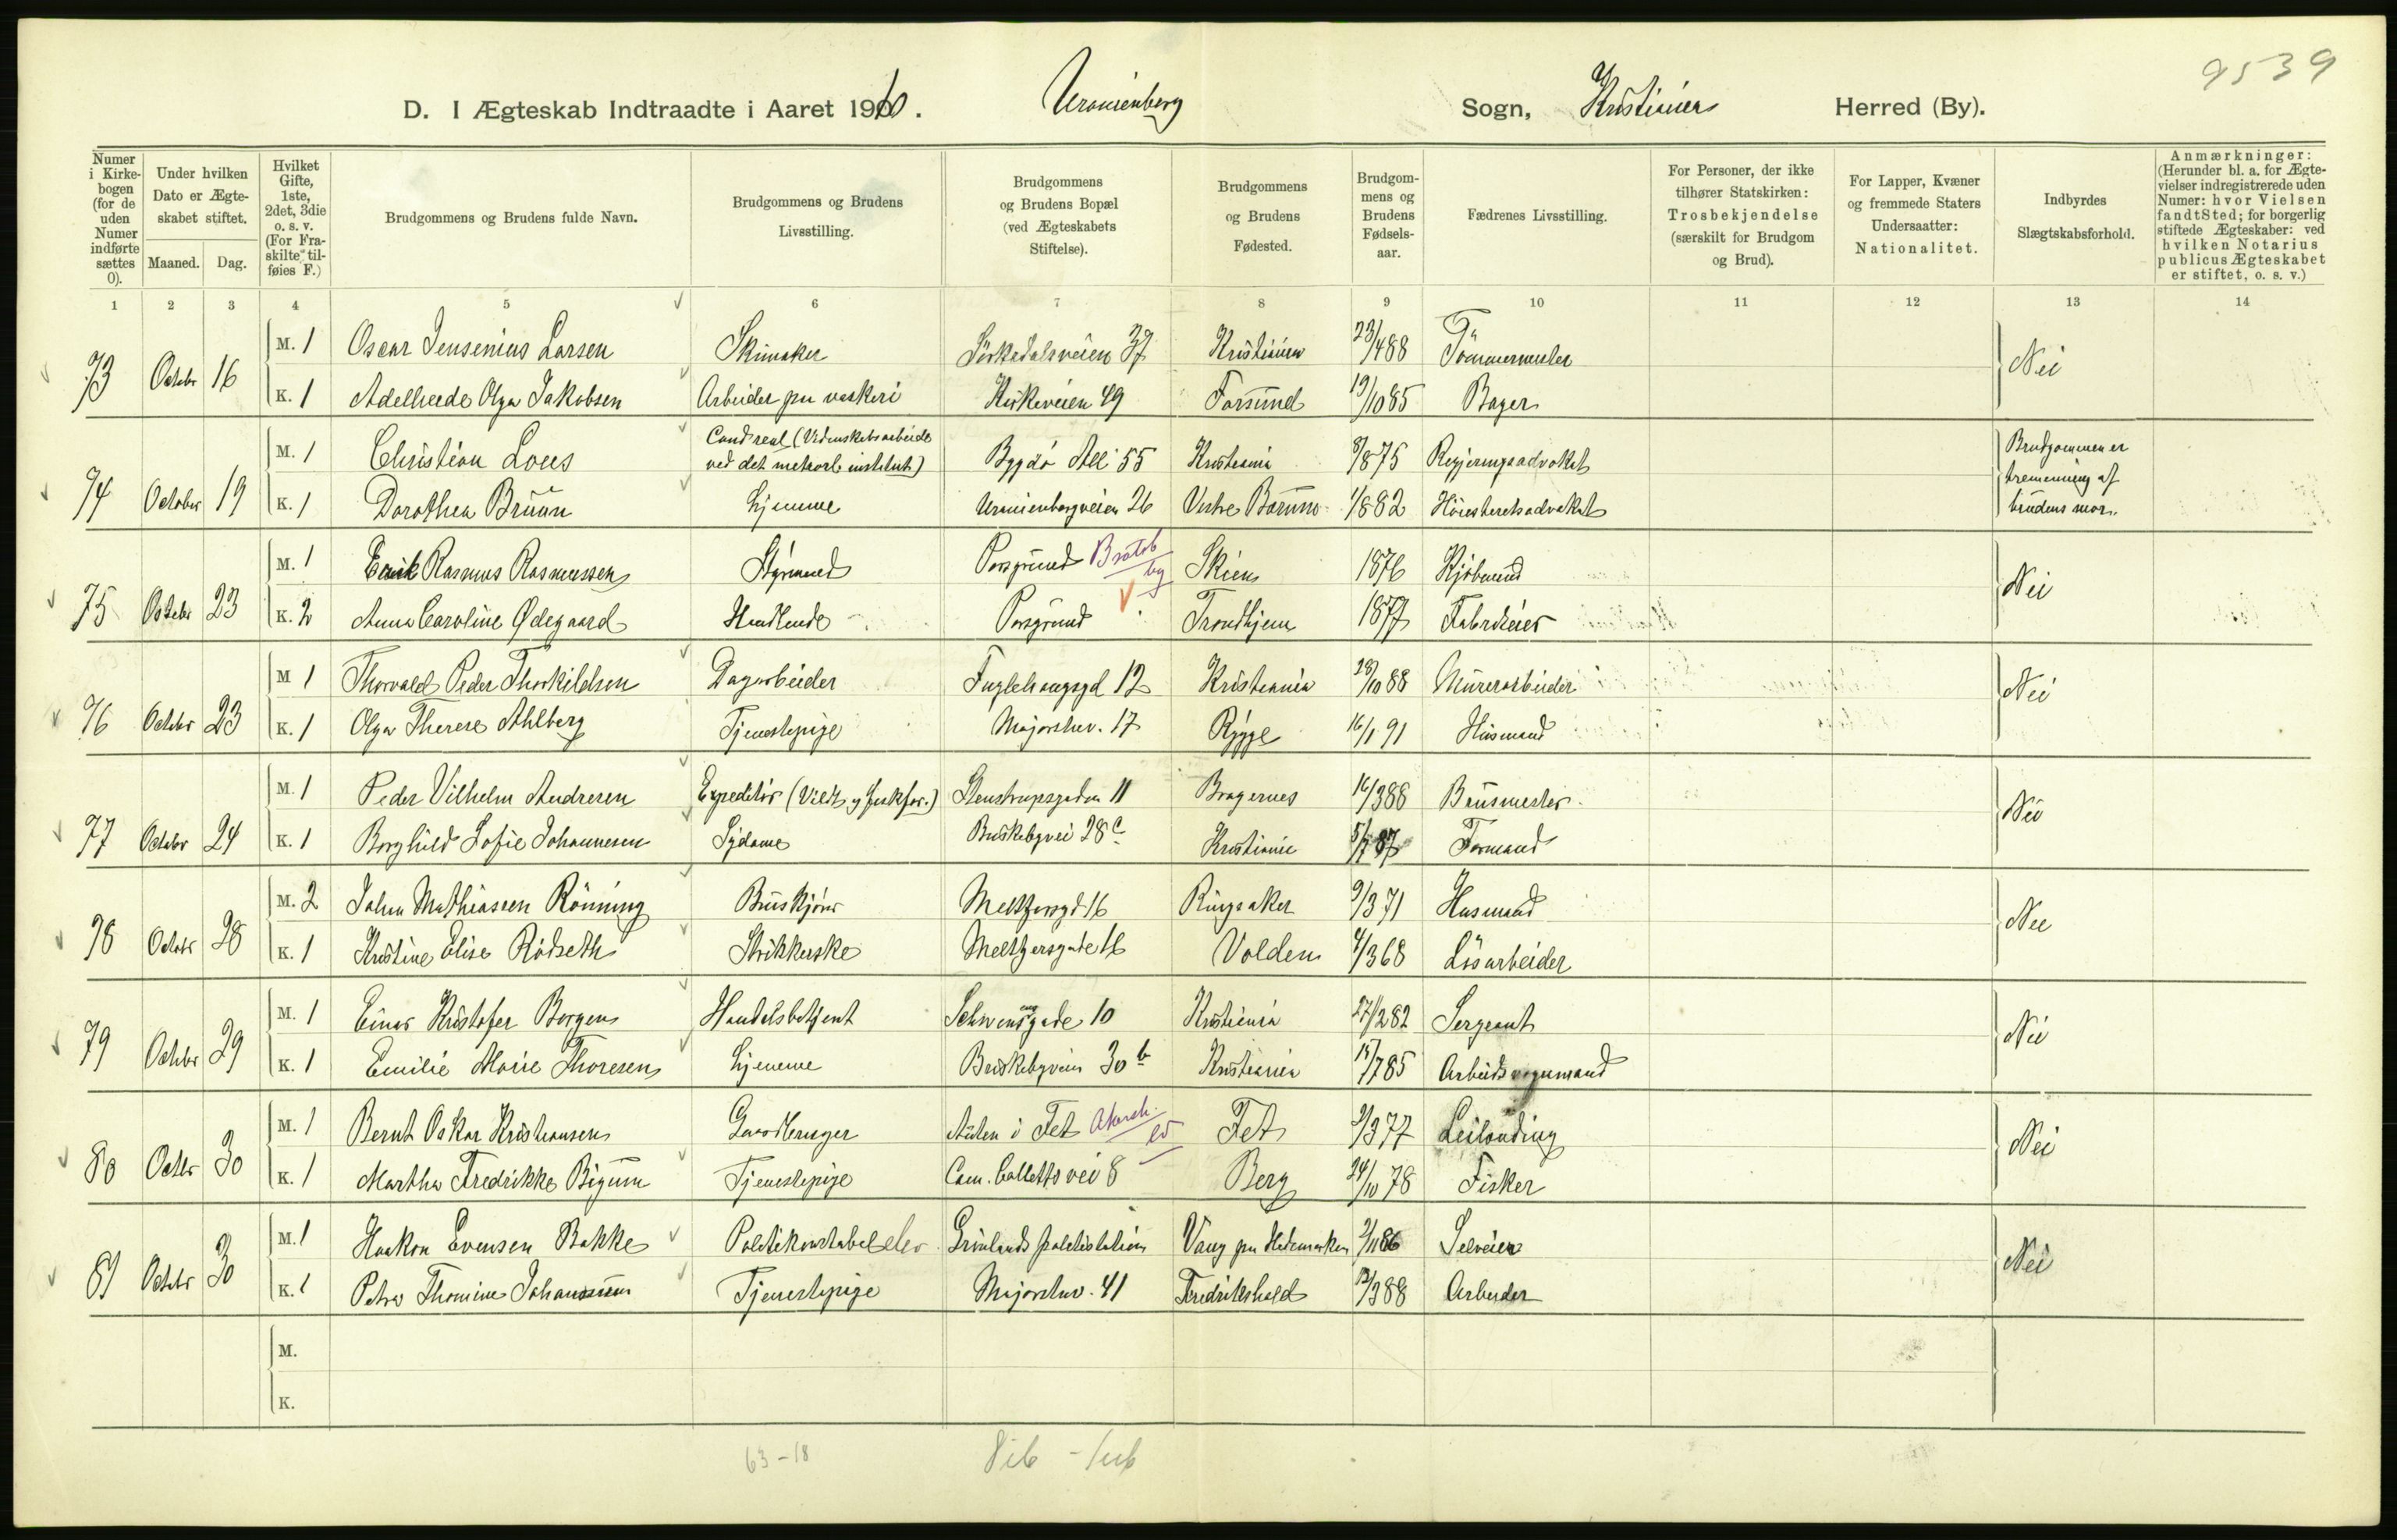 9539
D. I Ægteskab Indtraadte i Aaret 1910. Uranienborg Sogn, Kristiania Herred (By).
Numer i Kirkebogen (for de uden Numer indførte sættes 0).
Under hvilken Dato er Ægteskabet stiftet.
Maaned. Dag.
Hvilket Gifte, 1ste, 2det, 3die o. s. v. (For Fraskilte tilføies F.)
Brudgommens og Brudens fulde Navn.
Brudgommens og Brudens Livsstilling.
Brudgommens og Brudens Bopæl (ved Ægteskabets Stiftelse).
Brudgommens og Brudens Fødested.
Brudgommens og Brudens Fødselsaar.
Fædrenes Livsstilling.
For Personer, der ikke tilhører Statskirken: Trosbekjendelse (særskilt for Brudgom og Brud).
For Lapper, Kvæner og fremmede Staters Undersaatter: Nationalitet.
Indbyrdes Slægtskabsforhold.
Anmærkninger: (Herunder bl. a. for Ægtevielser indregistrerede uden Numer: hvor Vielsen fandt Sted; for borgerlig stiftede Ægteskaber: ved hvilken Notarius publicus Ægteskabet er stiftet, o. s. v.)
1 2 3 4 5 6 7 8 9 10 11 12 13 14
73 Octobr 16 M. 1 Oscar Jensenius Larsen Skimaker Sörkedalsveien 37 Kristiania 23/4 88 Tömmermester Nei
K. 1 Adelheide Olga Jakobsen Arbeider paa vaskeri Kirkeveien 49 Farsund 19/10 85 Bager
74 October 19 M. 1 Christian Lous Cand real (Videnskabsarbeide ved det meteorl. institut) Bygdö Allé 55 Kristiania 8/8 75 Regjeringsadvokat Brudgommen er tremenning af brudens mor.
K. 1 Dorothea Bruun hjemme Uranienborgveien 26 Vestre Bærum 1/8 82 Höiesteretsadvokat
75 Octobr 23 M. 1 Erik Rasmus Rasmussen Styrmand Porsgrund Bratsb by Skien 1876 Kjöbmand Nei
K. 2 Anna Caroline Ødegaard Handlende Porsgrund Trondhjem 1877 Fabrikeier
76 Octobr 23 M. 1 Thorvald Peder Thorkildsen Dagarbeider Fuglehaugsgd 12 Kristiania 28/10 88 Murerarbeider Nei
K. 1 Olga Therese Ahlberg Tjenestepige Majorstuv. 17 Rygge 16/1 91 Husmand
77 Octobr 24 M. 1 Peder Vilhelm Andresen Expeditör (Vildt og fiskfor.) Stenstrupsgaden 11 Bragernes 16/3 88 Brusmester Nei
K. 1 Borghild Sofie Johannesen Sydame Briskebyvei 28c Kristiania 5/7 87 Formand
78 Octobr 28 M. 2 Johan Mathiassen Rönning Buskjörer Meltzersgd 16 Ringsaker 9/3 71 Husmand Nei
K. 1 Kristine Elise Rödseth Strikkerske Meltzersgade 16 Volden 4/3 68 Lösarbeider
79 Octobr 29 M. 1 Einar Kristofer Borgen Handelsbetjent Schwensensgade 10 Kristiania 27/2 82 Sergeant Nei
K. 1 Emilie Marie Thoresen hjemme Briskebyveien 30 b Kristiania 15/7 85 Arbeidsvognmand
80 Octbr 30 M. 1 Bernt Oskar Kristiansen Gaardbruger i Fet Akersh. Fet 2/3 77 Leilending Nei
K. 1 Martha Fredrikke Bigum Tjenestepige Cam. Colletts vei 8 Berg 24/10 78 Fisker
81 Octobr 30 M. 1 Haakon Evensen Bakke Politikonstabelelev Grönlands politistation Vang paa Hedemarken 2/11 86 Selveier Nei
K. 1 Petra Thomine Johansen Tjenestepige Majorstuv. 41 Fredrikshald 12/3 88 Arbeider
M.
K.
63-18